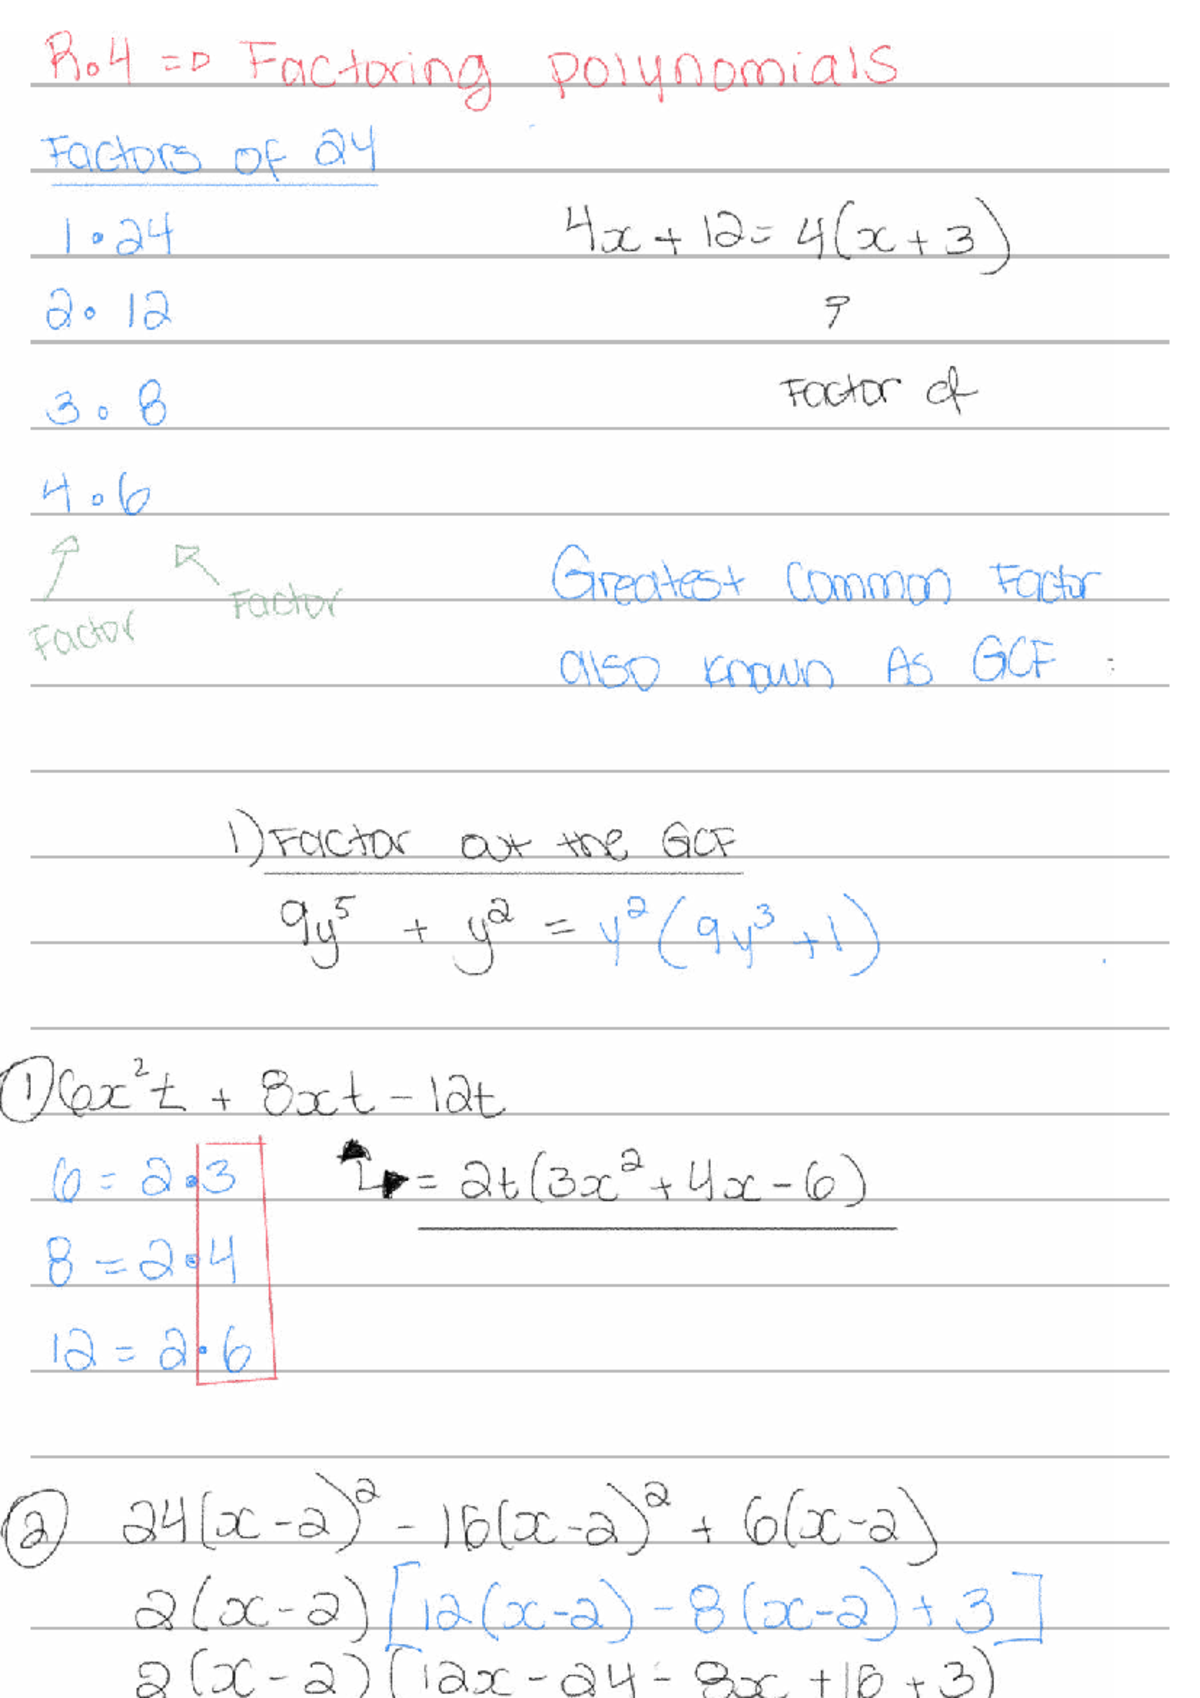 R.4 => Factoring polynomials
Factors of 24
1 • 24
4x + 12 = 4(x + 3)
2 • 12
↑
3 • 8
Factor of
4 • 6
Factor
Factor
Greatest Common Factor
also known As GCF
1) Factor out the GCF
9y⁵ + y² = y²(9y³ + 1)
① 6x²t + 8xt - 12t
6 = 2 • 3
= 2t(3x² + 4x - 6)
8 = 2 • 4
12 = 2 • 6
② 24(x-2)² - 16(x-2)² + 6(x-2)
2(x-2)[12(x-2) - 8(x-2) + 3]
2(x-2)(12x - 24 - 8x + 16 + 3)